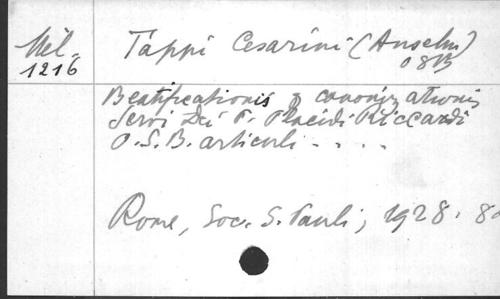 Mél. Tappi Cesarini (Anselm)
1216 OSB
Beatificationis & canonizationis
Servi Dei P. Placidi Riccardi
O.S.B. articuli - - - -
Rome, Soc. S. Pauli, 1928. 8º